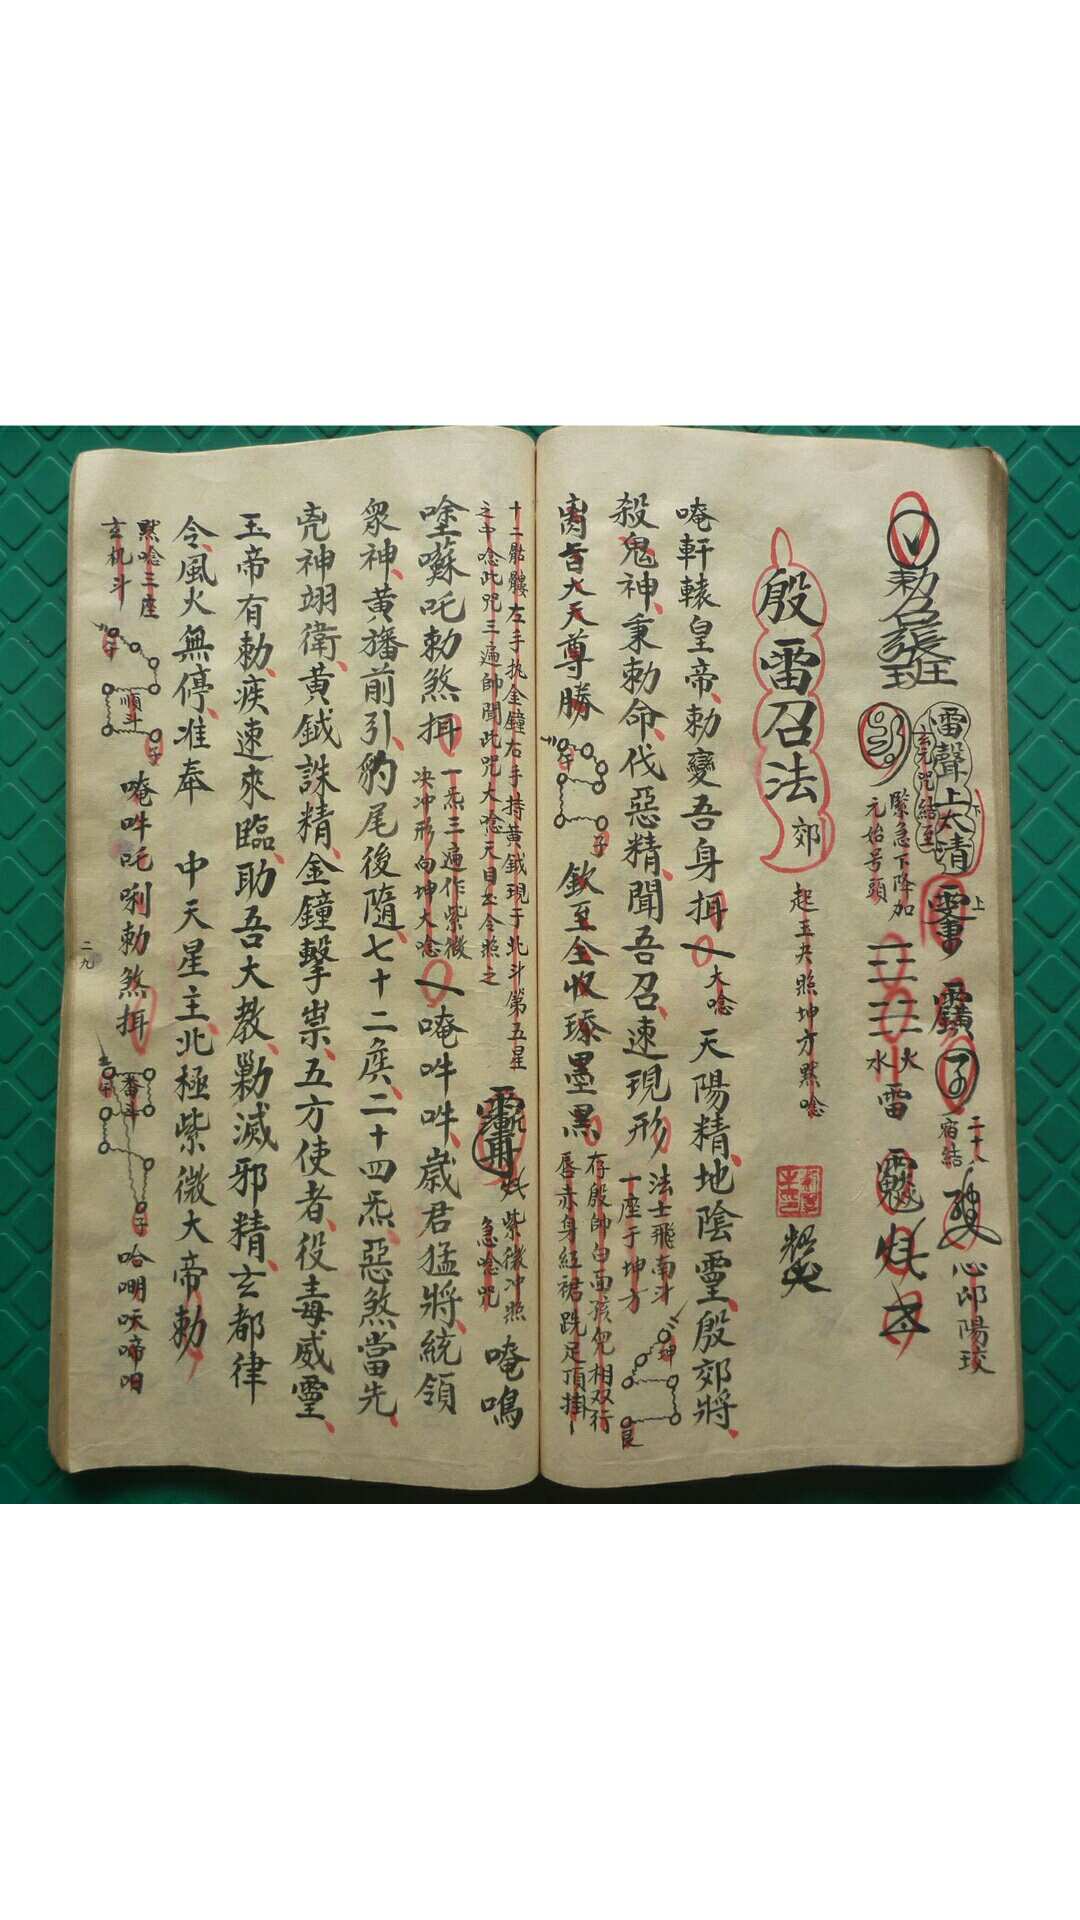 勅召張班
雷聲上大清
玄元咒結至
下
上
二十八
宿結
心印陽玟
緊急下降加
元始号頭
火
水
雷
殷雷召法 郊
起玉央照坤方默唸
唵軒轅皇帝勅變吾身挕 大唸 天陽精地陰靈殷郊將
殺鬼神秉勅命伐惡精聞吾召速現形 法士飛南斗
一座于坤方
坤
艮
大天尊勝
午
子
欽至全收 墨黑
存殷帥白面孩兒相双行
唇赤身紅裙跣足頂掛
十二骷髏左手执金鐘右手持黃鉞現于北斗第五星
之中唸此咒三遍帥聞此咒大唸天目玉令照之
紫微冲照
急唸咒
唵鳴
㙛囌吒勅煞挕 一炁三遍作紫微
决冲形向坤大唸
唵吽吽歲君猛將統領
衆神黃旛前引豹尾後隨七十二侯二十四炁惡煞當先
兇神翊衛黃鉞誅精金鐘擊祟五方使者役毒威靈
玉帝有勅疾速來臨助吾大教勦滅邪精玄都律
令風火無停准奉 中天星主北極紫微大帝勅
默唸三座
玄机斗
午
順斗
子
唵吽吒唎勅煞挕
午
番斗
子
哈㗆呋啼呾
二九